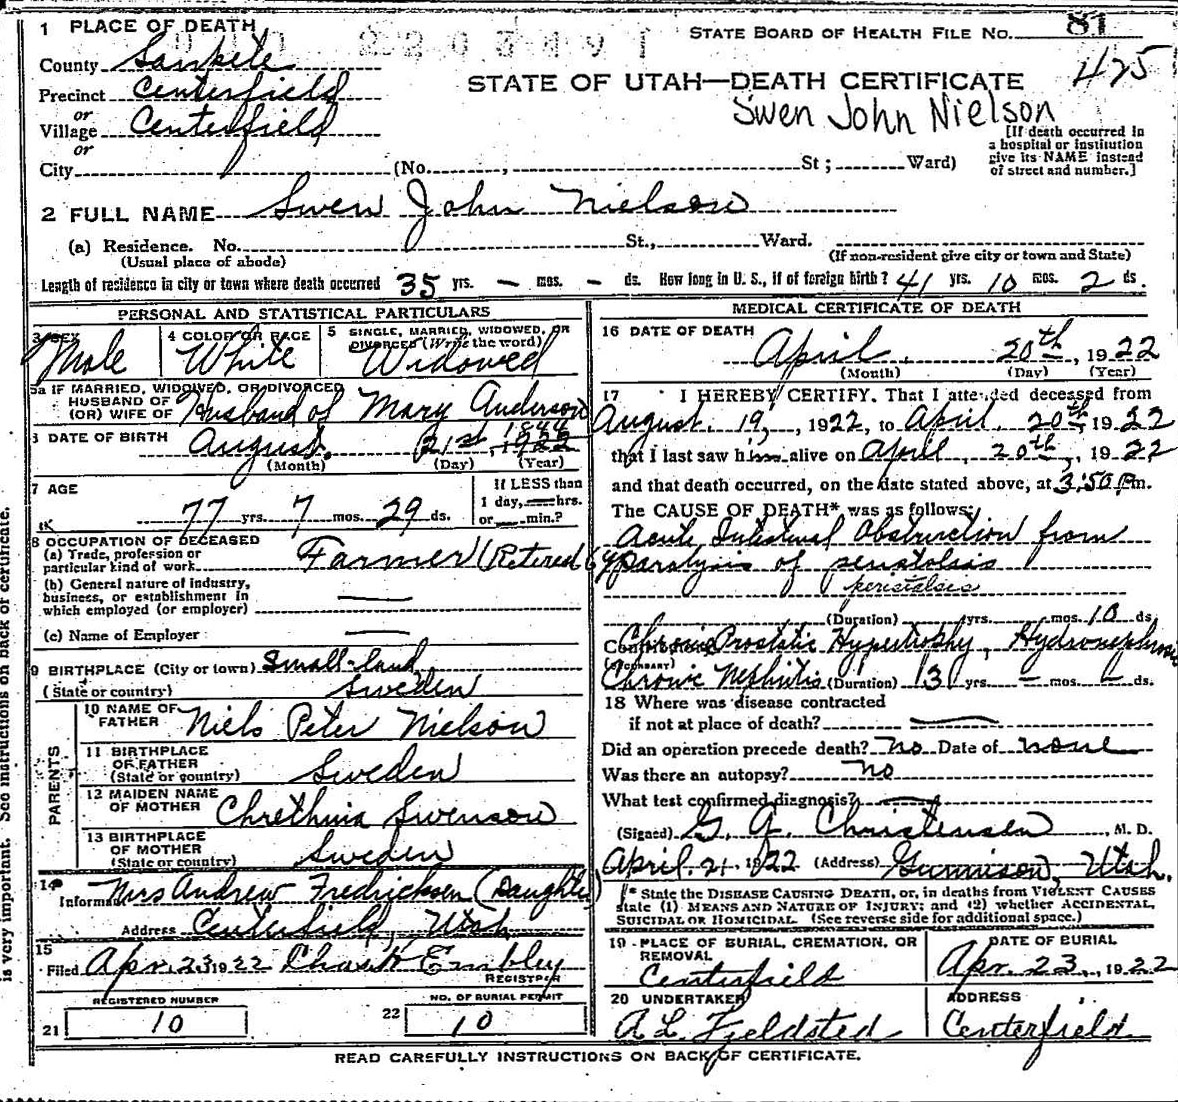 1 PLACE OF DEATH
STATE BOARD OF HEALTH FILE No. 81
425
County Sanpete
STATE OF UTAH—DEATH CERTIFICATE
Precinct Centerfield
Swen John Nielson
or
Village Centerfield
or
[If death occurred in a hospital or institution give its NAME instead of street and number.]
City (No. , St ; Ward)
2 FULL NAME Swen John Nielson
(a) Residence. No. St., Ward.
(Usual place of abode) (If non-resident give city or town and State)
Length of residence in city or town where death occurred 35 yrs. — mos. — ds. How long in U. S., if of foreign birth? 41 yrs. 10 mos. 2 ds.
PERSONAL AND STATISTICAL PARTICULARS
3 SEX Male
4 COLOR OR RACE White
5 SINGLE, MARRIED, WIDOWED, OR DIVORCED (Write the word) Widowed
5a IF MARRIED, WIDOWED, OR DIVORCED
HUSBAND OF
(OR) WIFE OF Husband of Mary Anderson
6 DATE OF BIRTH August 21st, 1844
(Month) (Day) (Year)
7 AGE 77 yrs. 7 mos. 29 ds.
If LESS than 1 day, hrs. or min.?
8 OCCUPATION OF DECEASED
(a) Trade, profession or particular kind of work Farmer (Retired
(b) General nature of industry, business, or establishment in which employed (or employer) —
(c) Name of Employer —
9 BIRTHPLACE (City or town) Small-land
(State or country) Sweden
PARENTS
10 NAME OF FATHER Niels Peter Nielson
11 BIRTHPLACE OF FATHER (State or country) Sweden
12 MAIDEN NAME OF MOTHER Swenson
13 BIRTHPLACE OF MOTHER (State or country) Sweden
14 Informant Mrs Andrew Fredricksen (Daughter)
Address Centerfield, Utah
15 Filed Apr. 23, 1922 Chas H Embley
REGISTRAR
REGISTERED NUMBER
21 10
NO. OF BURIAL PERMIT
22 10
MEDICAL CERTIFICATE OF DEATH
16 DATE OF DEATH
April 20th, 1922
(Month) (Day) (Year)
17 I HEREBY CERTIFY, That I attended deceased from
August. 19, 1922, to April. 20th, 1922
that I last saw him alive on April, 20th, 1922
and that death occurred, on the date stated above, at 3:50 Pm.
The CAUSE OF DEATH* was as follows:
Acute Intestinal Obstruction from
Paralysis of peristolsis
peristalsis
(Duration) yrs. mos. 10 ds.
Contributory Chronic Prostatic Hypertrophy, Hydronephrosis
(SECONDARY)
Chronic Nephritis (Duration) 3 yrs. — mos. — ds.
18 Where was disease contracted
if not at place of death? —
Did an operation precede death? no Date of none
Was there an autopsy? no
What test confirmed diagnosis? —
(Signed) G. A. Christensen, M. D.
April. 21. 1922 (Address) Gunnison, Utah.
* State the DISEASE CAUSING DEATH, or, in deaths from VIOLENT CAUSES
state (1) MEANS AND NATURE OF INJURY; and (2) whether ACCIDENTAL,
SUICIDAL OR HOMICIDAL. (See reverse side for additional space.)
19 PLACE OF BURIAL, CREMATION, OR REMOVAL
Centerfield
DATE OF BURIAL
Apr. 23, 1922
20 UNDERTAKER
A L Fjeldsted
ADDRESS
Centerfield
READ CAREFULLY INSTRUCTIONS ON BACK OF CERTIFICATE.
is very important. See instructions on back of certificate.